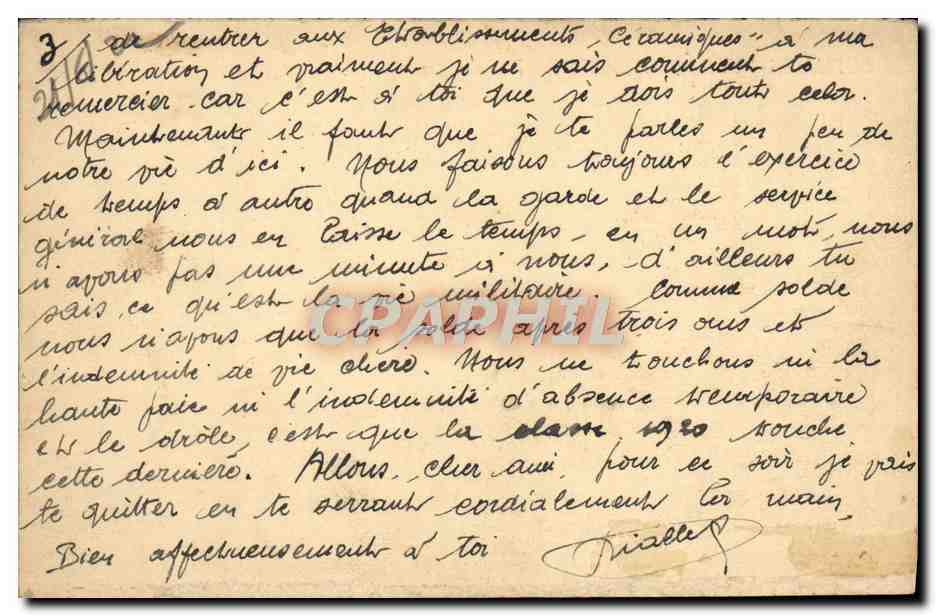 3 de rentrer aux Etablissements Céramiques" à ma
libération et vraiment je ne sais comment te
remercier car c'est à toi que je dois toute cela.
Maintenant il faut que je te parles un peu de
notre vie d'ici. Nous faisons toujours l'exercice
de temps à autre quand la garde et le service
général nous en laisse le temps, en un mot, nous
n'avons pas une minute à nous, d'ailleurs tu
sais ce qu'est la vie militaire. Comme solde
nous n'avons que la solde après trois ans et
l'indemnité de vie chère. Nous ne touchons ni la
haute paie ni l'indemnité d'absence temporaire
et le drôle, c'est que la classe 1920 touche
cette dernière. Allons, cher ami, pour ce soir je vais
te quitter en te serrant cordialement la main
Bien affectueusement à toi
CPAPHIL